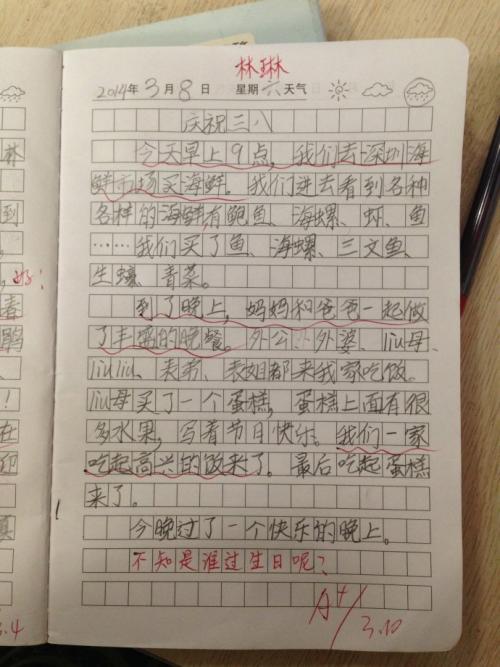 林琳
2014年3月8日 星期六 天气
庆祝三八
今天早上9点，我们去深圳海
鲜市场买海鲜。我们进去看到各种
各样的海鲜，有鲍鱼、海螺、虾、鱼
……我们买了鱼、海螺、三文鱼、
生蠔、青菜。
到了晚上，妈妈和爸爸一起做
了丰盛的晚餐。外公、外婆、liu母、
liuliu、表弟、表姐都来我家吃饭。
liu母买了一个蛋糕，蛋糕上面有很
多水果，写着节日快乐。我们一家
吃起高兴的饭来了。最后吃起蛋糕
来了。
今晚过了一个快乐的晚上。
不知是谁过生日呢？
A+
3.10
林
到
好！
春
鹃
！
在
迎
3.4